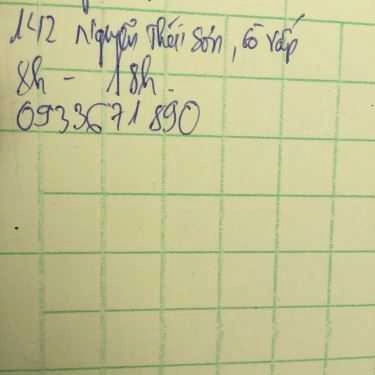 142 Nguyễn Thái Sơn, Gò Vấp
8h - 18h.
0933671890